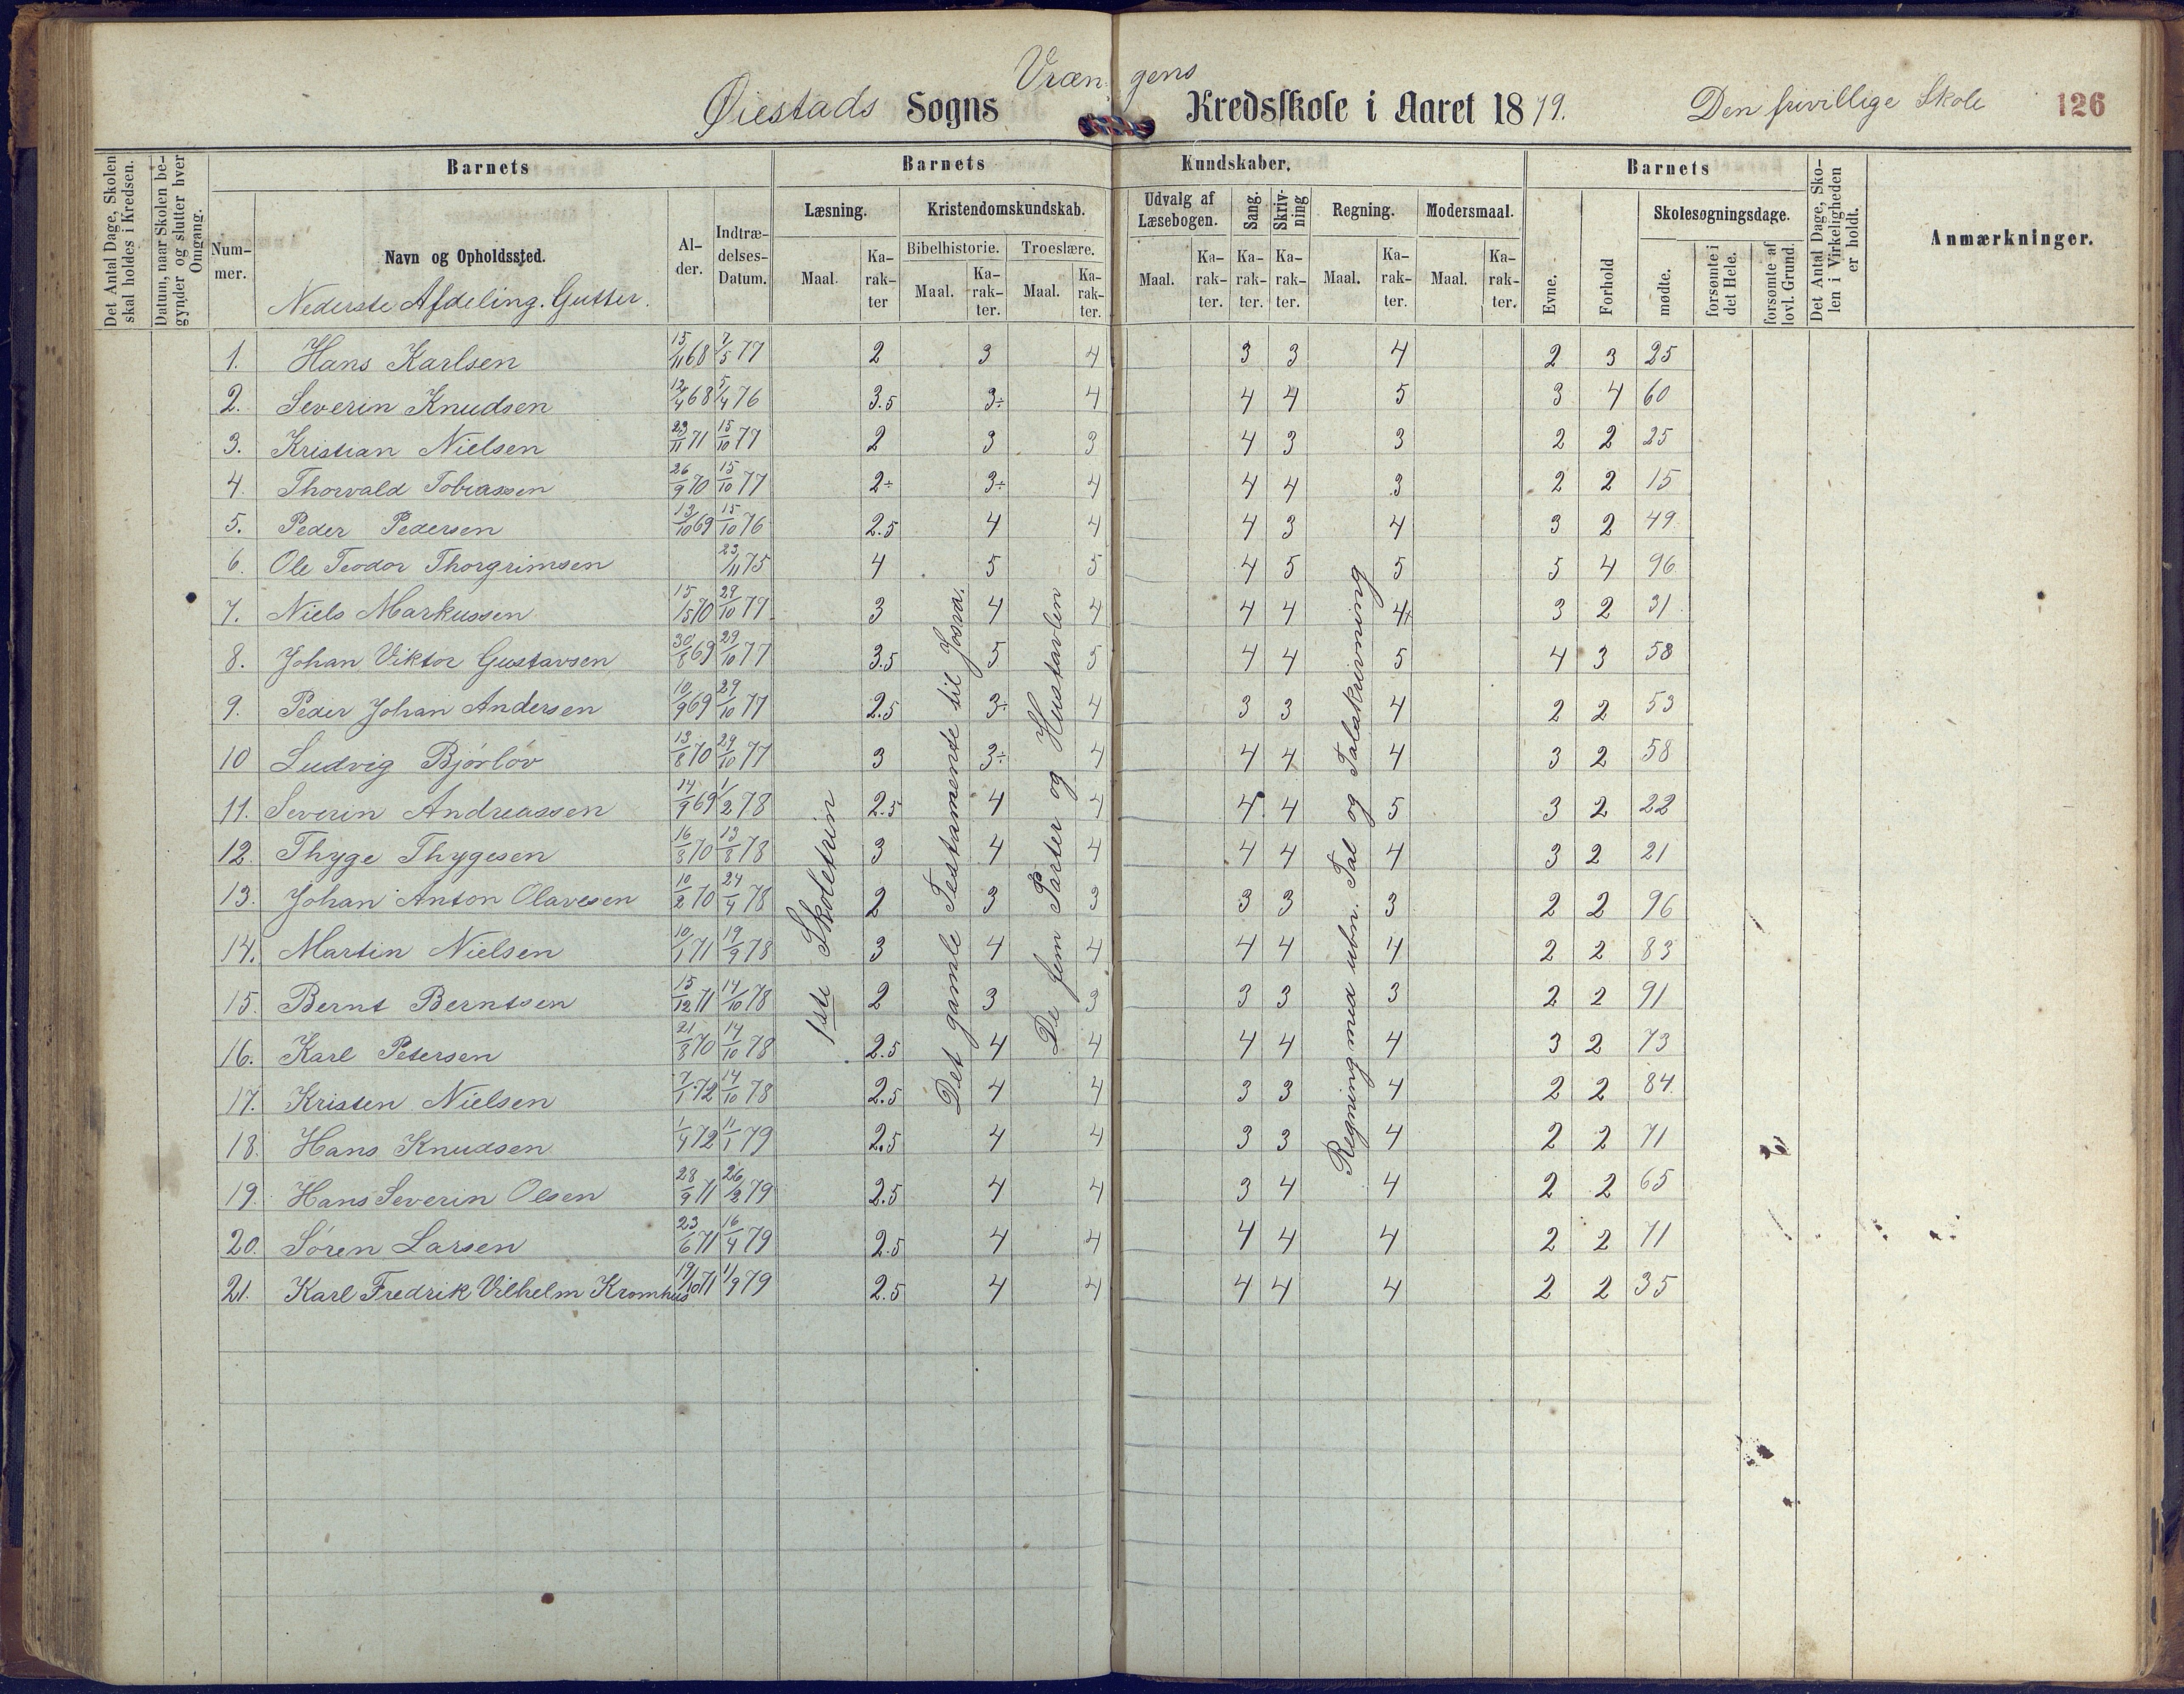 Øiestads Sogns Vræn- gens Kredsskole i Aaret 1879. Den frivillige Skole 126
Det Antal Dage, Skolen skal holdes i Kredsen.
Datum, naar Skolen begynder og slutter hver Omgang.
Barnets
Barnets Kundskaber.
Barnets
Det Antal Dage, Skolen i Virkeligheden er holdt.
Anmærkninger.
Nummer.
Navn og Opholdssted.
Nederste Afdeling. Gutter.
Alder.
Indtrædelses-Datum.
Læsning.
Maal.
Karakter
Kristendomskundskab.
Bibelhistorie.
Maal.
Karakter.
Troeslære.
Maal.
Karakter.
Udvalg af Læsebogen.
Maal.
Karakter.
Sang.
Karakter.
Skrivning
Karakter.
Regning.
Maal.
Karakter.
Modersmaal.
Maal.
Karakter.
Evne.
Forhold
Skolesøgningsdage.
mødte.
forsømte i det Hele.
forsømte af lovl. Grund.
1. Hans Karlsen 15/11 68 7/5 77 2 3 4 3 3 4 2 3 25
2. Severin Knudsen 12/4 68 5/4 76 3.5 3÷ 4 4 4 5 3 4 60
3. Kristian Nielsen 23/11 71 15/10 77 2 3 3 4 3 3 2 2 25
4. Thorvald Tobiassen 26/9 70 15/10 77 2÷ 3÷ 4 4 4 3 2 2 15
5. Peder Pedersen 13/10 69 15/10 76 2.5 4 4 4 3 4 3 2 49
6. Ole Teodor Thorgrimsen 23/11 75 4 5 5 4 5 5 5 4 96
7. Niels Markussen 70 29/10 77 3 4 4 4 4 4 3 2 31
8. Johan Viktor Gustavsen 30/8 69 29/10 77 3.5 5 5 4 4 5 4 3 58
9. Peder Johan Andersen 10/9 69 29/10 77 2.5 3÷ 4 3 3 4 2 2 53
10 Ludvig Bjørløv 13/8 70 29/10 77 3 3÷ 4 4 4 4 3 2 58
11. Severin Andreassen 14/9 69 1/2 78 2.5 4 4 4 4 5 3 2 22
12. Thyge Thygesen 16/8 70 13/8 78 3 4 4 4 4 4 3 2 21
13. Johan Anton Olavesen 10/2 70 24/4 78 2 3 3 3 3 3 2 2 96
14. Martin Nielsen 10/1 71 19/9 78 3 4 4 4 4 4 2 2 83
15. Bernt Berntsen 15/12 71 14/10 78 2 3 3 3 3 3 2 2 91
16. Karl Petersen 21/8 70 14/10 78 2.5 4 4 4 4 4 3 2 73
17. Kristen Nielsen 7/1 72 14/10 78 2.5 4 4 3 3 4 2 2 84
18. Hans Knudsen 1/4 72 11/1 79 2.5 4 4 3 3 4 2 2 71
19. Hans Severin Olsen 28/9 71 26/2 79 2.5 4 4 3 4 4 2 2 65
20. Søren Larsen 23/6 71 16/4 79 2.5 4 4 4 4 4 2 2 71
21. Karl Fredrik Vilhelm Kromhus 19/10 71 1/9 79 2.5 4 4 4 4 4 2 2 35
1ste Skoletrin
Det gamle Testamente til Josva.
De fem Parter og Hustavlen
Regning med ubn. Tal og Talskrivning